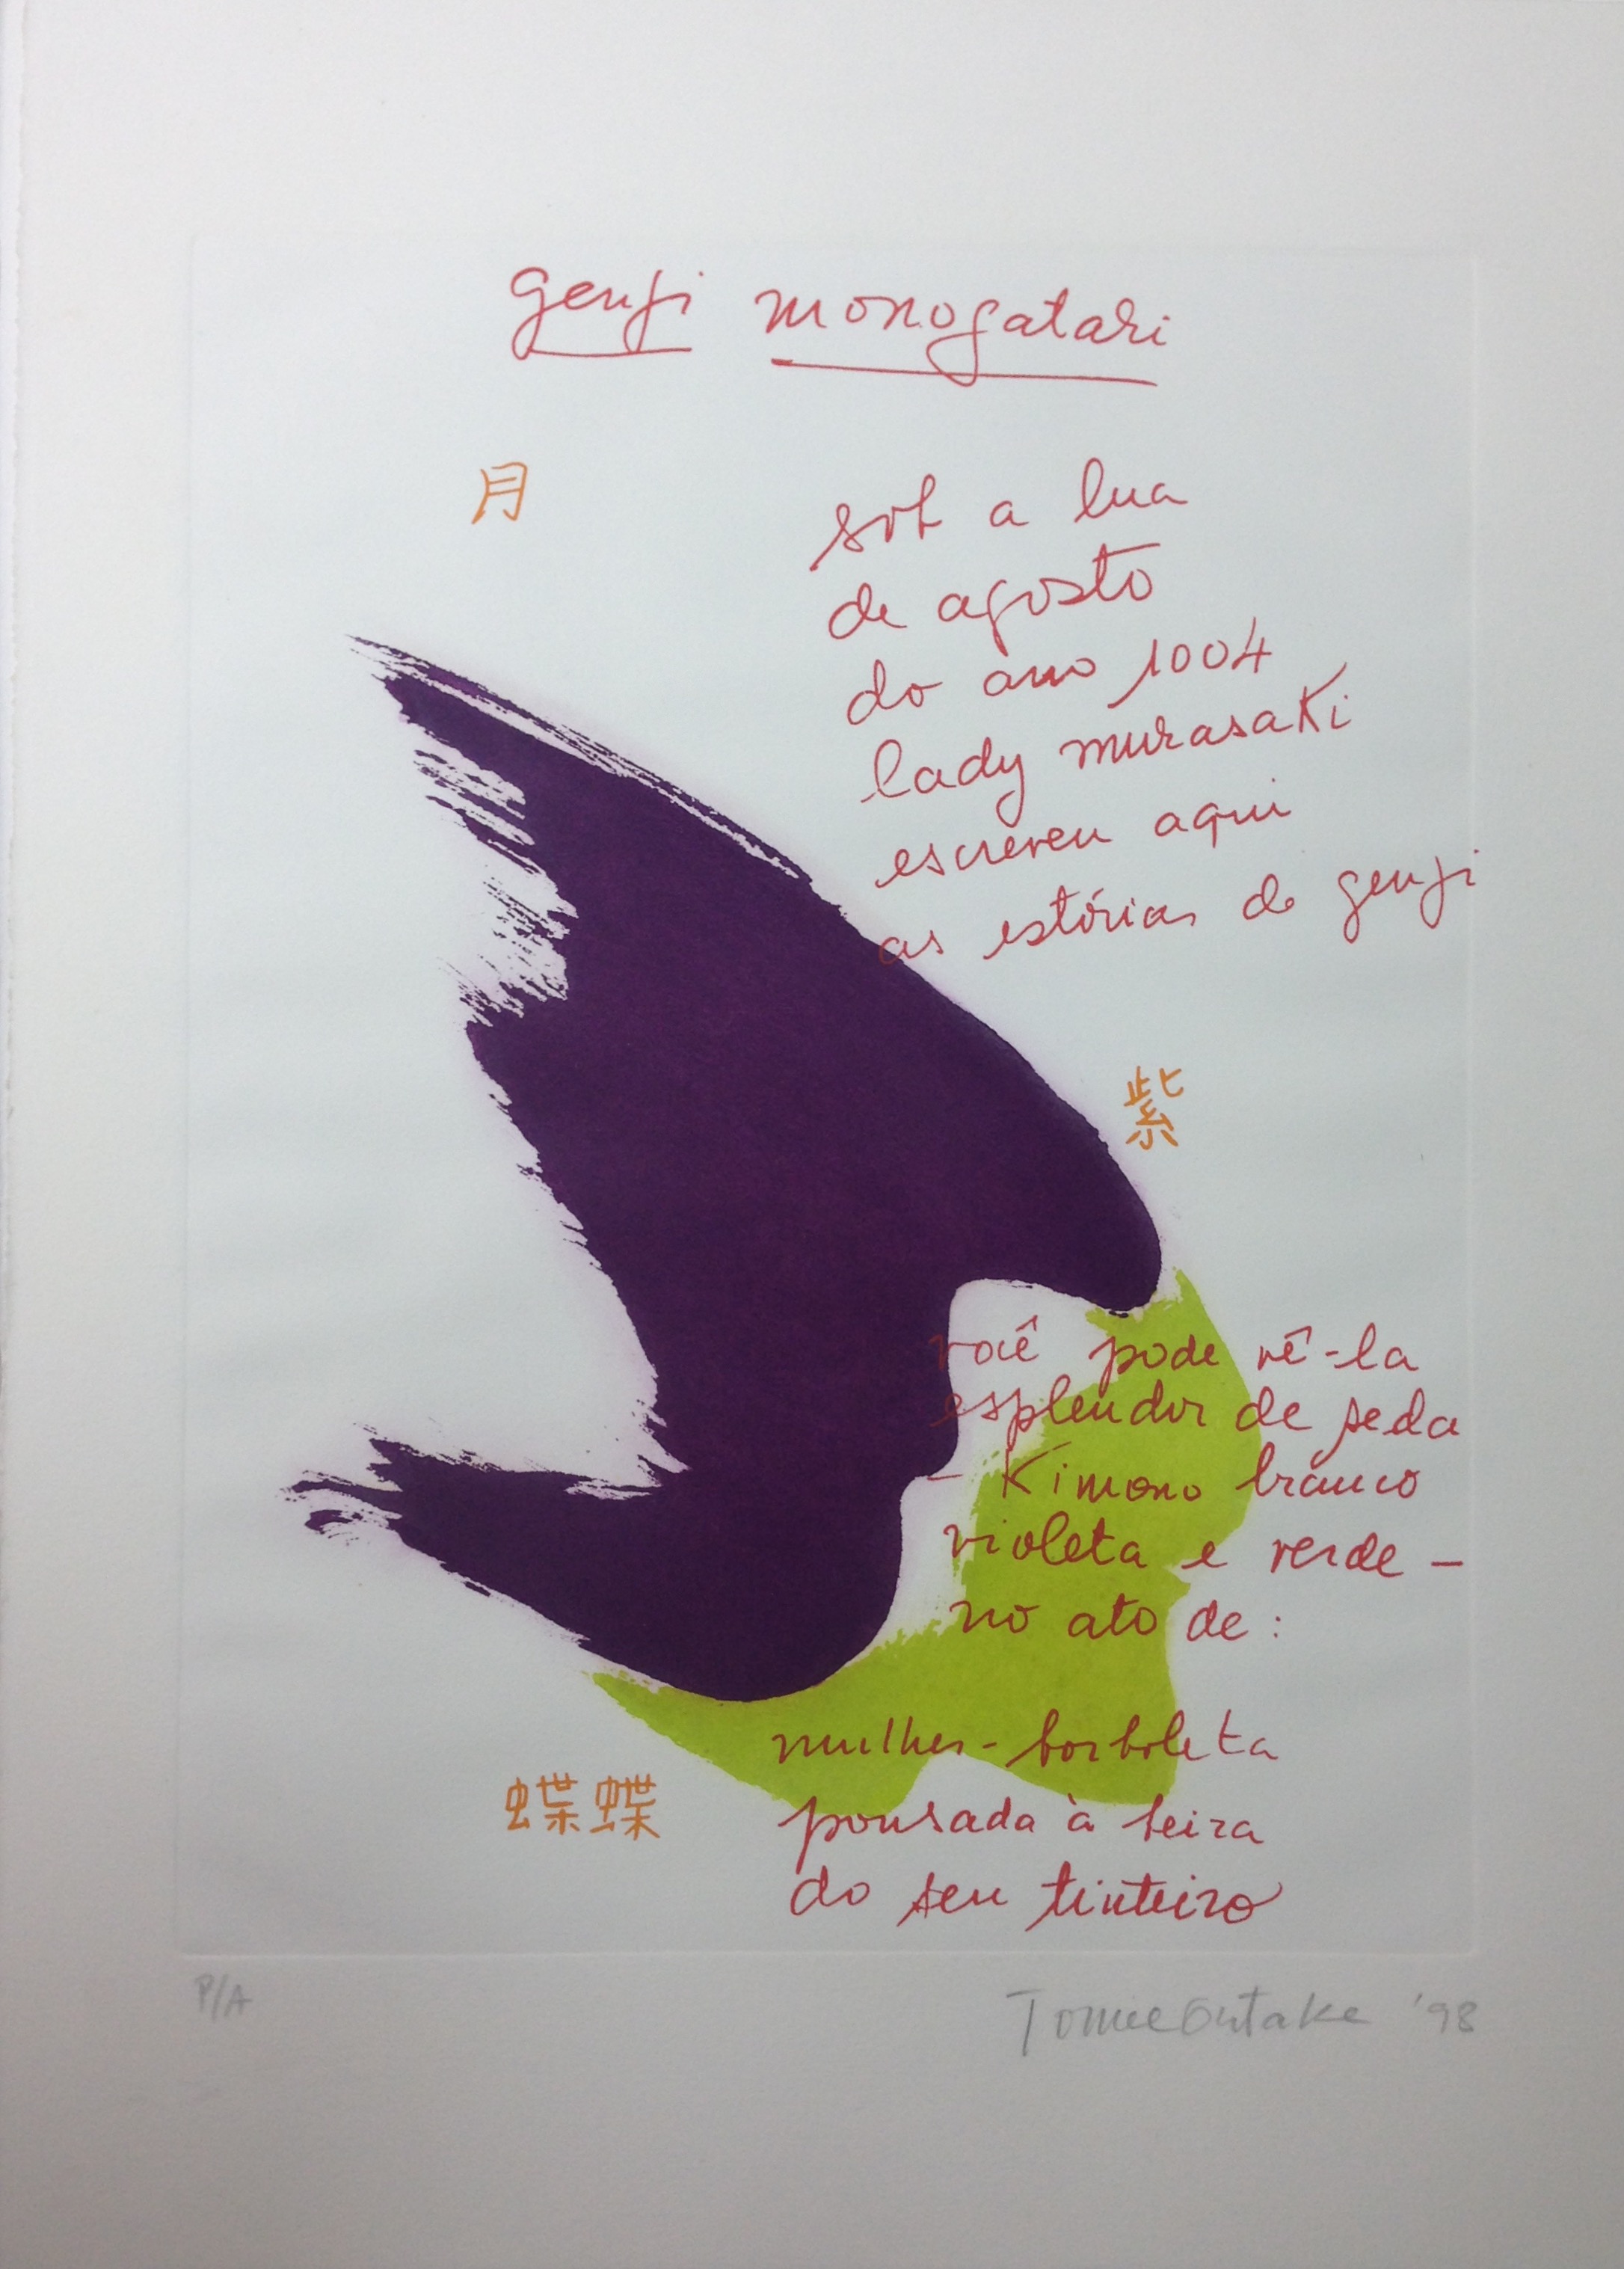 genji monogatari
月
sob a lua
de agosto
do ano 1004
lady murasaki
escreveu aqui
as estórias de genji
紫
você pode vê-la
esplendor de seda
- Kimono branco
violeta e verde -
no ato de:
mulher-borboleta
pousada à beira
do seu tinteiro
蝶蝶
P/A
Tomie Ohtake '98